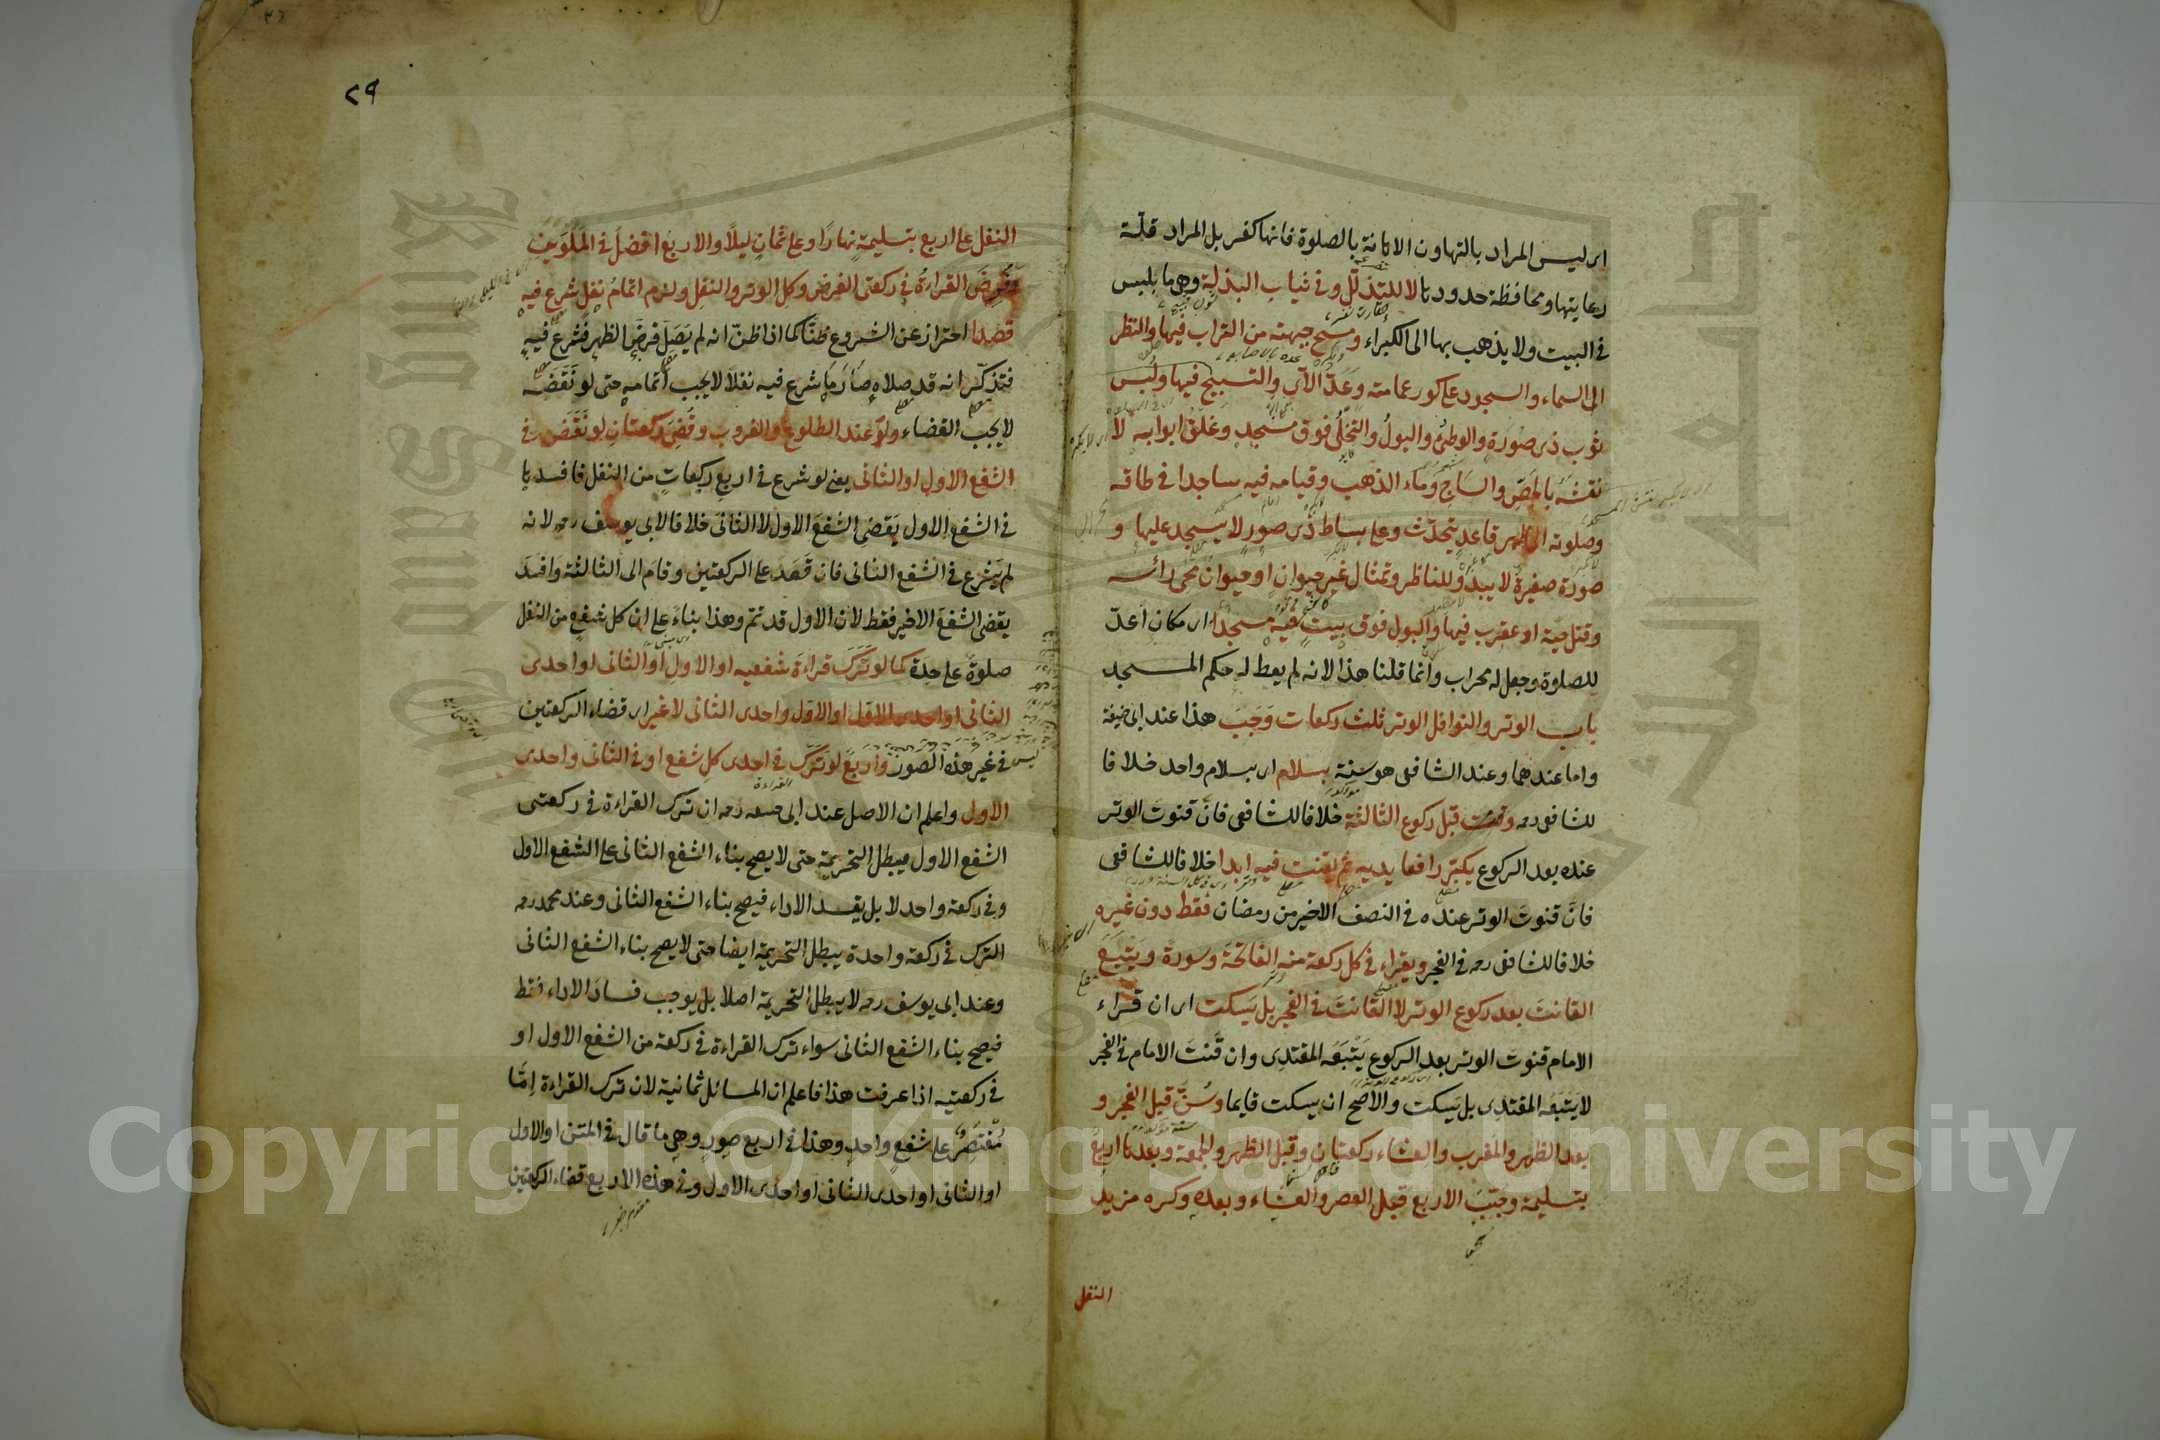 اى ليس المراد بالتهاون الاهانة بالصلوة فانها كفر بل المراد قلة
رعايتها ومحافظة حدودها لا للتذلل وفى ثياب البذلة وهى ما يلبس
فى البيت ولا يذهب بها الى الكبراء ومسح جبهته من التراب فيها والنظر
الى السماء والسجود على كور عمامته وعد الآى والتسبيح فيها ولبس
ثوب ذى صورة والوطئ والبول والتخلى فوق مسجد وغلق ابوابه لا
نقشه بالجص والساج وماء الذهب وقيامه فيه ساجدا فى طاقه
وصلوته الى ظهر قاعد يتحدث وعلى بساط ذى صور لا يسجد عليها و
صورة صغيرة لا يبدو للناظر وتمثال غير حيوان او حيوان محى رائسه
وقتل حية او عقرب فيها والبول فوق بيت فيه مسجد اى مكان اعد
للصلوة وجعل له محراب وانما قلنا هذا لانه لم يعط له حكم المسجد
باب الوتر والنوافل الوتر ثلث ركعات وجب هذا عند ابى حنيفة
واما عندهما وعند الشافعى هو سنة بسلام اى بسلام واحد خلافا
للشافعى رحمه وقنت قبل ركوع الثالثة خلافا للشافعى فان قنوت الوتر
عنده بعد الركوع يكبر رافعا يديه ثم يقنت فيه ابدا خلافا للشافعى
فان قنوت الوتر عنده فى النصف الاخير من رمضان فقط دون غيره
خلافا للشافعى رحمه فى الفجر ويقراء فى كل ركعة منه الفاتحة وسورة ويتبع
القانت بعد ركوع الوتر لا القانت فى الفجر بل يسكت اى ان قراء
الامام قنوت الوتر بعد الركوع يتبعه المقتدى وان قنت الامام فى الفجر
لا يتبعه المقتدى بل يسكت والاصح ان يسكت قايما وسن قبل الفجر و
بعد الظهر والمغرب والعشاء ركعتان وقبل الظهر والجمعة وبعدها اربع
بتسليمة وحبب الاربع قبل العصر والعشاء وبعده وكره مزيد
النفل
٢٩
النفل على اربع بتسليمة نهارا وعلى ثمان ليلا والاربع افضل فى الملوين
وفرض القراءة فى ركعتى الفرض وكل الوتر والنفل ولزم اتمام نفل شرع فيه
قصدا احتراز عن الشروع ظنا كما اذا ظن انه لم يصل فرض الظهر فشرع فيه
فتذكر انه قد صلاه صار ما شرع فيه نفلا لا يجب اتمامه حتى لو نقضه
لا يجب القضاء ولو عند الطلوع والغروب وقضى ركعتان لو نقض فى
الشفع الاول او الثانى يعنى لو شرع فى اربع ركعات من النفل فافسدها
فى الشفع الاول يقضى الشفع الاول لا الثانى خلافا لابى يوسف رحمه لانه
لم يشرع فى الشفع الثانى فان قعد على الركعتين وقام الى الثالثة وافسد
يقضى الشفع الاخير فقط لان الاول قد تم وهذا بناء على ان كل شفع من النفل
صلوة على حدة كما لو ترك قراءة شفعيه او الاول او الثانى او احدى
الثانى او احدى الاول او الاول واحدى الثانى لا غير اى قضاء الركعتين
ليس فى غير هذه الصور واربع لو ترك فى احدى كل شفع او فى الثانى واحدى
الاول واعلم ان الاصل عند ابى حنيفه رحمه ان ترك القراءة فى ركعتى
الشفع الاول يبطل التحريمة حتى لا يصح بناء الشفع الثانى على الشفع الاول
وفى ركعة واحد لا بل يفسد الاداء فيصح بناء الشفع الثانى وعند محمد رحمه
الترك فى ركعة واحدة يبطل التحريمة ايضا حتى لا يصح بناء الشفع الثانى
وعند ابى يوسف رحمه لا يبطل التحريمة اصلا بل يوجب فساد الاداء فقط
فيصح بناء الشفع الثانى سواء ترك القراءة فى ركعة من الشفع الاول او
فى ركعتيه اذا عرفت هذا فاعلم ان المسائل ثمانية لان ترك القراءة اما
مقتصر على شفع واحد وهذا فى اربع صور وهى ما قال فى المتن او الاول
او الثانى او احدى الثانى او احدى الاول وفى هذه الاربع قضاء الركعتين
Copyright © King Saud University